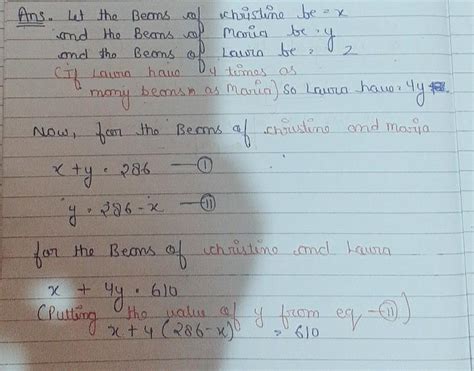 Ans. Let the Beans of christine be = x
and the Beans of Maria be = y
and the Beans of Laura be = z
(If Laura have 4 times as
many beans as Maria) So Laura have = 4y
Now, for the Beans of christine and maria
x + y = 286 — (I)
y = 286 - x — (II)
for the Beans of christine and Laura
x + 4y = 610
(Putting the value of y from eq - (II))
x + 4 (286 - x) = 610